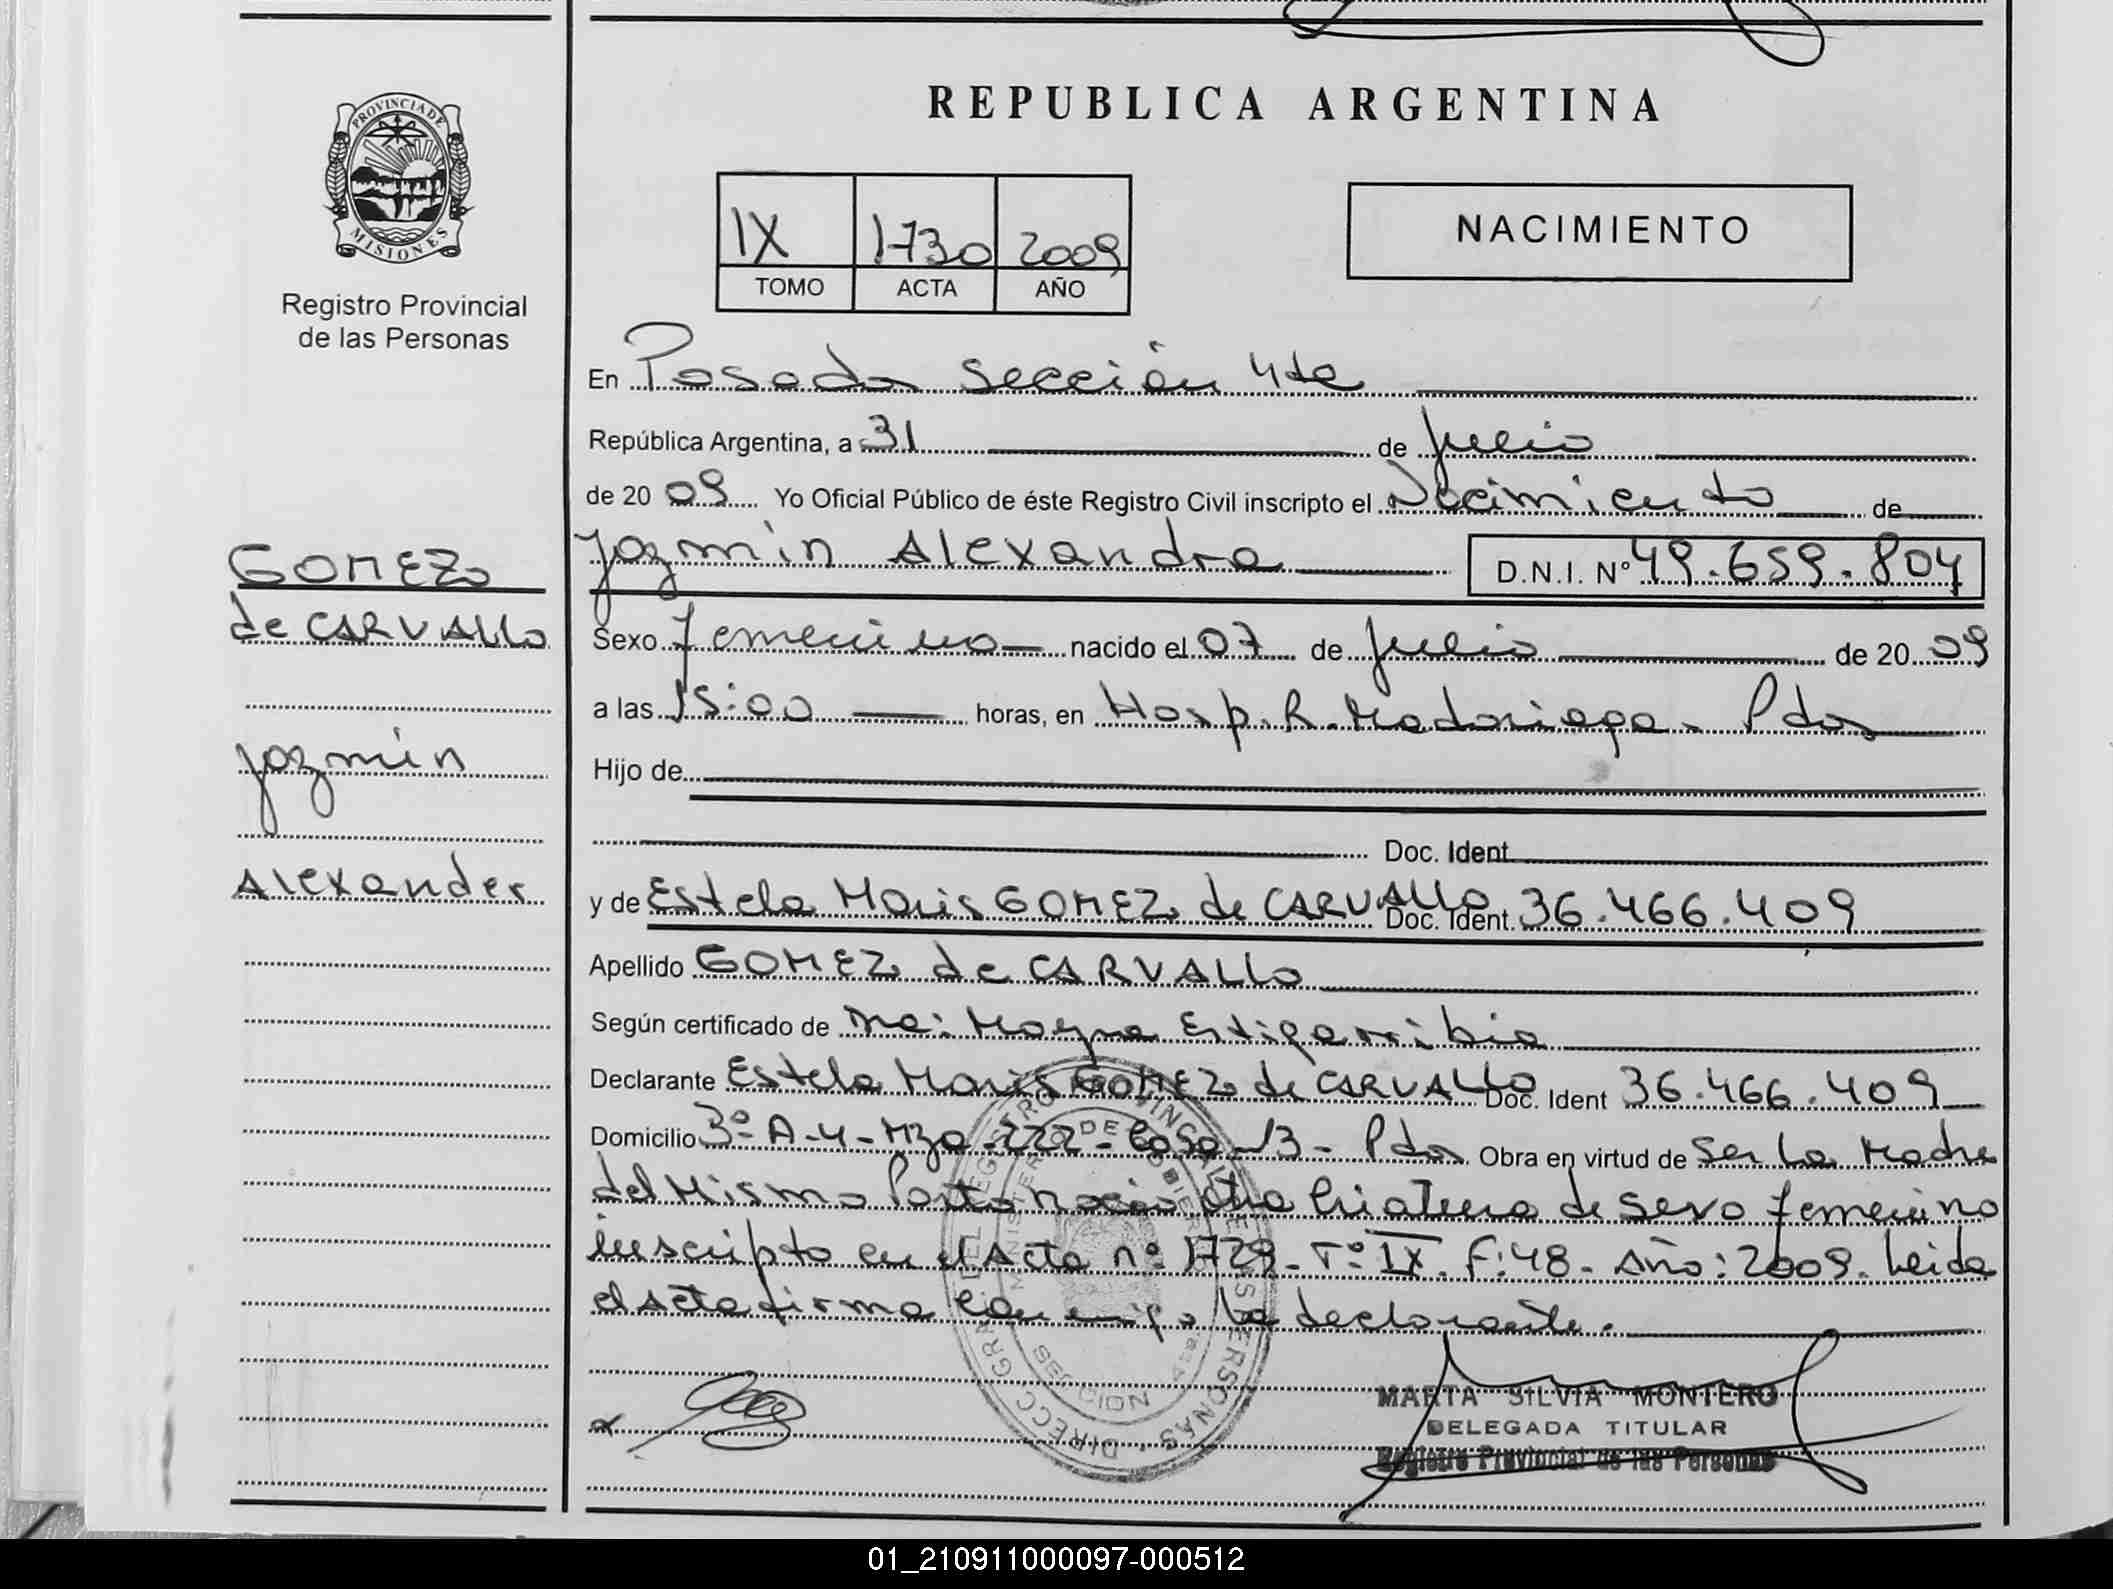 REPUBLICA ARGENTINA
PROVINCIA DE
MISIONES
Registro Provincial
de las Personas
IX 1730 2009
TOMO ACTA AÑO
NACIMIENTO
En Posadas sección 4ta
República Argentina, a 31 de julio
de 2009 Yo Oficial Público de éste Registro Civil inscripto el Nacimiento de
Jazmin Alexandra D.N.I. N° 49.659.804
GOMEZ
de CARVALLO
Jazmin
Alexander
Sexo femenino nacido el 07 de julio de 2009
a las 15:00 horas, en Hosp. R. Madariaga - Pdas
Hijo de
Doc. Ident.
y de Estela Maris GOMEZ de CARVALLO Doc. Ident. 36.466.409
Apellido GOMEZ de CARVALLO
Según certificado de Mayra Estigarribia
Declarante Estela Maris GOMEZ de CARVALLO Doc. Ident 36.466.409
Domicilio 3° A-4-Mza-222-Casa-13- Pdas Obra en virtud de ser la Madre
del Mismo Parto nació otra Criatura de sexo femenino
inscripto en el Acta n° 1729- T° IX. F:48- Año: 2009. Leida
el acta firma conmigo la declarante.
MARTA SILVIA MONTERO
DELEGADA TITULAR
Registro Provincial de las Personas
01_210911000097-000512